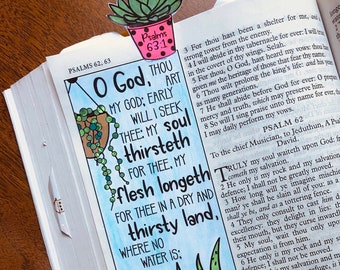 PSALMS 62, 63
Psalms
63:1
O God, THOU
ART
MY GOD; EARLY
WILL I SEEK
THEE: MY soul
thirsteth
FOR THEE, MY
flesh longeth
FOR THEE IN A DRY AND
thirsty land,
WHERE NO
WATER IS;
3 For thou hast been a shelter for me, and
strong tower from the enemy.
4 I will abide in thy tabernacle for ever: I will
in the covert of thy wings. Selah.
5 For thou, O God, hast heard my vows: thou
given me the heritage of those that fear thy name
6 Thou wilt prolong the king's life: and his years
as many generations.
7 He shall abide before God for ever: O prepare
mercy and truth, which may preserve him.
8 So will I sing praise unto thy name for ever,
I may daily perform my vows.
PSALM 62
To the chief Musician, to Jeduthun, A P
David.
TRULY my soul waiteth upon God:
cometh my salvation.
2 He only is my rock and my salvation
defence; I shall not be greatly moved.
3 How long will ye imagine mischief
shall be slain all of you: as a
4 They only consult to cast him
they delight in lies: they
but they curse inwardly.
5 My soul, wait thou only upon
expectation is from him.
6 He only is my rock and my